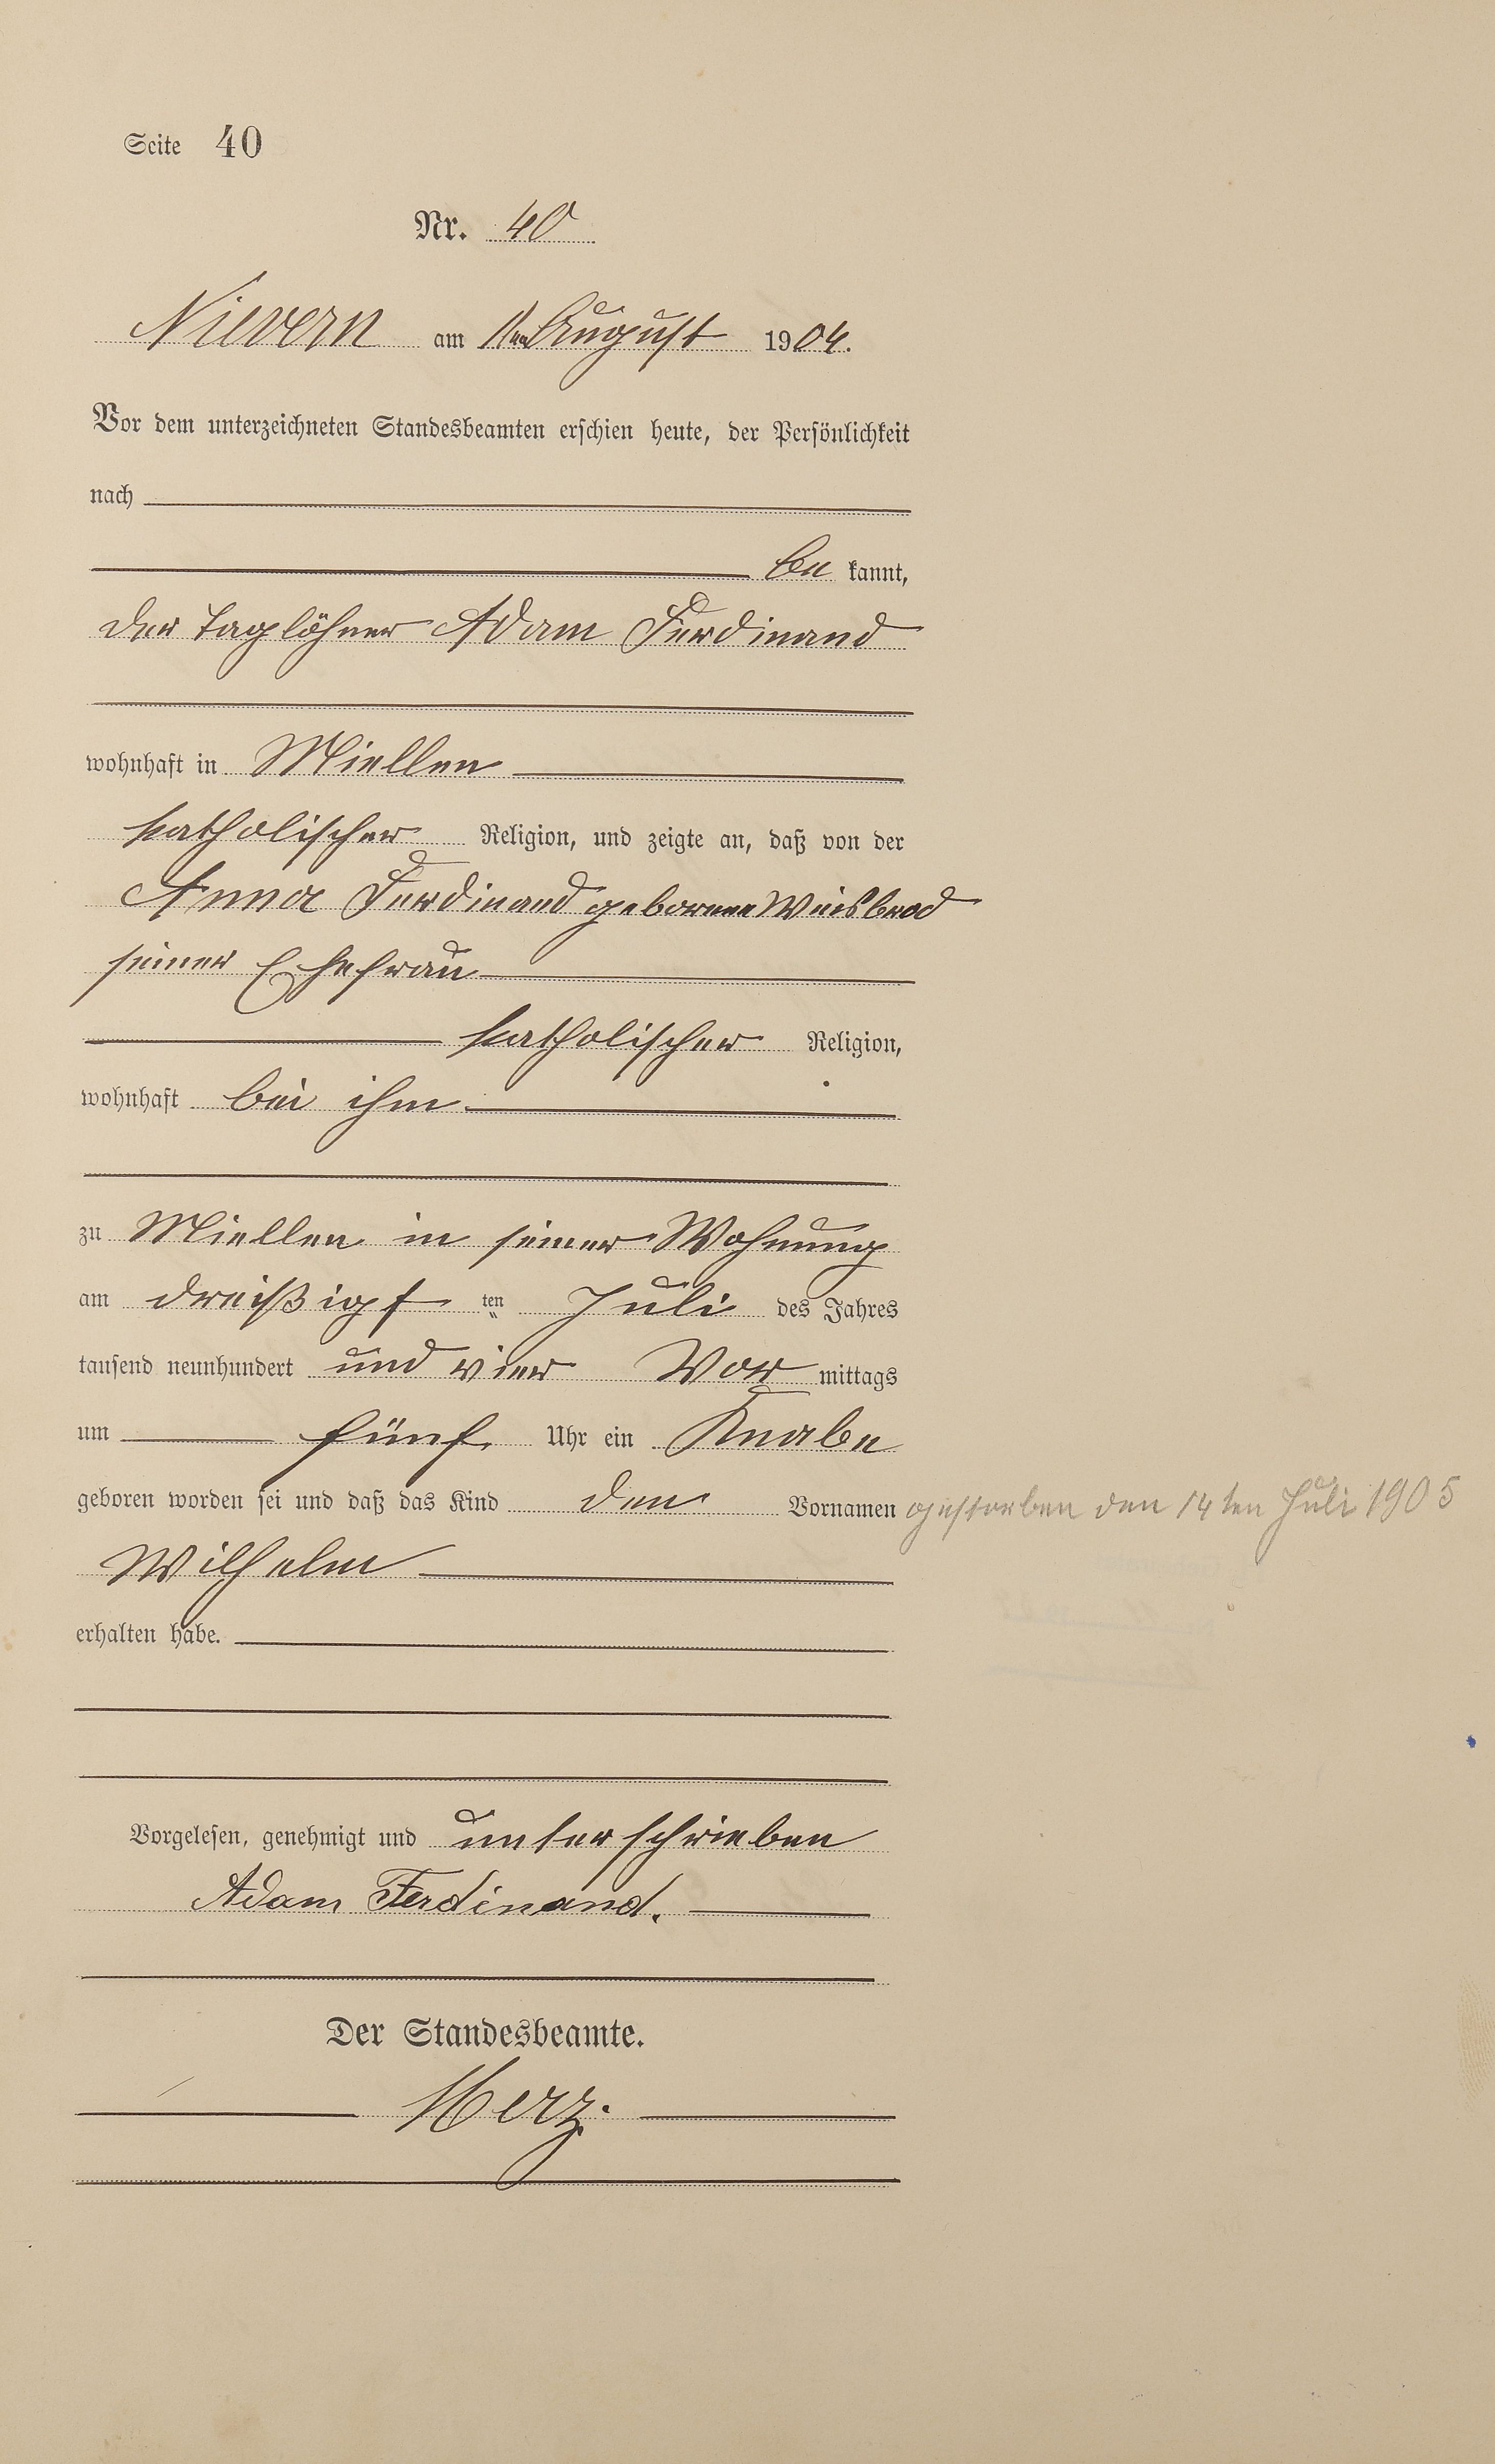 Seite 40
Nr. 40
Nievern am 1ten August 1904.
Vor dem unterzeichneten Standesbeamten erschien heute, der Persönlichkeit
nach
be kannt,
der Taglöhner Adam Ferdinand
wohnhaft in Miellen
katholischer Religion, und zeigte an, daß von der
Anna Ferdinand geborene Weisbrod
seiner Ehefrau
katholischer Religion,
wohnhaft bei ihm
zu Miellen in seiner Wohnung
am dreißigst ten Juli des Jahres
tausend neunhundert und vier Vor mittags
um fünf Uhr ein Knabe
geboren worden sei und daß das Kind den Vornamen gestorben den 14ten Juli 1905
Wilhelm
erhalten habe.
Vorgelesen, genehmigt und unterschrieben
Adam Ferdinand.
Der Standesbeamte.
Merz.